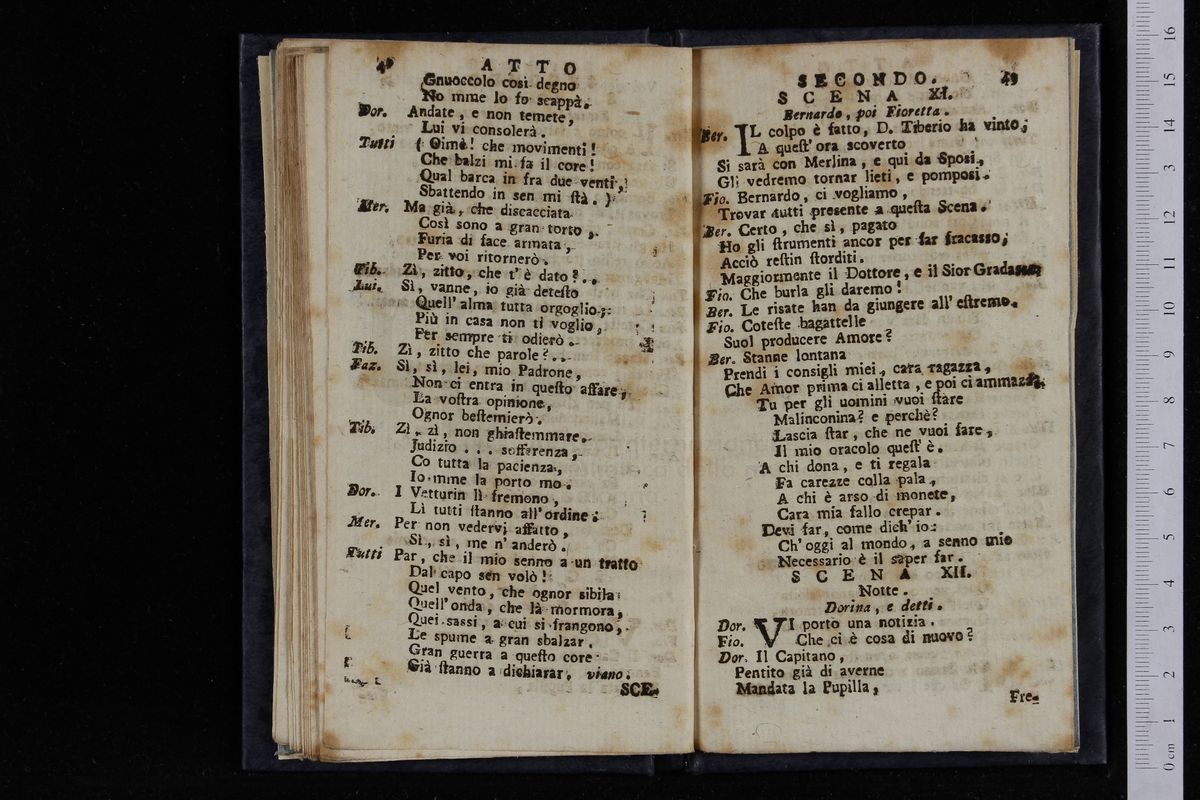 ATTO
Gnuoccolo così degno
No mme lo fo scappà.
Dor. Andate, e non temete,
Lui vi consolerà.
Tutti ( Oimè! che movimenti!
Che balzi mi fa il core!
Qual barca in fra due venti,
Sbattendo in sen mi stà. )
Mer. Ma già, che discacciata
Così sono a gran torto,
Furia di face armata,
Per voi ritornerò.
Tib. Zì, zitto, che t'è dato?..
Lui. Sì, vanne, io già detesto
Quell'alma tutta orgoglio;
Più in casa non ti voglio,
Per sempre ti odierò.
Tib. Zì, zitto che parole?..
Faz. Sì, sì, lei, mio Padrone,
Non ci entra in questo affare,
La vostra opinione,
Ognor bestemierò.
Tib. Zì, zì, non ghiastemmare.
Judizio . . . sofferenza,
Co tutta la pacienza,
Io mme la porto mo.
Dor. I Vetturin lì fremono,
Lì tutti stanno all'ordine.
Mer. Per non vedervi affatto,
Sì, sì, me n'anderò.
Tutti Par, che il mio senno a un tratto
Dal capo sen volò!
Quel vento, che ognor sibila
Quell'onda, che là mormora,
Quei sassi, a cui si frangono,
Le spume a gran sbalzar,
Gran guerra a questo core
Già stanno a dichiarar. viano.
SCE-
SECONDO. 49
SCENA XI.
Bernardo, poi Fioretta.
Ber. IL colpo è fatto, D. Tiberio ha vinto;
A quest'ora scoverto
Si sarà con Merlina, e qui da Sposi,
Gli vedremo tornar lieti, e pomposi.
Fio. Bernardo, ci vogliamo,
Trovar tutti presente a questa Scena.
Ber. Certo, che sì, pagato
Ho gli strumenti ancor per far fracasso;
Acciò restin storditi.
Maggiormente il Dottore, e il Sior Gradasso;
Fio. Che burla gli daremo!
Ber. Le risate han da giungere all'estremo.
Fio. Coteste bagattelle
Suol producere Amore?
Ber. Stanne lontana
Prendi i consigli miei, cara ragazza,
Che Amor prima ci alletta, e poi ci ammazza.
Tu per gli uomini vuoi stare
Malinconina? e perchè?
Lascia star, che ne vuoi fare,
Il mio oracolo quest'è.
A chi dona, e ti regala
Fa carezze colla pala,
A chi è arso di monete,
Cara mia fallo crepar.
Devi far, come dich'io:
Ch'oggi al mondo, a senno mio
Necessario è il saper far.
SCENA XII.
Notte.
Dorina, e detti.
Dor. VI porto una notizia.
Fio. Che ci è cosa di nuovo?
Dor. Il Capitano,
Pentito già di averne
Mandata la Pupilla,
Fre-
16
15
14
13
12
11
10
9
8
7
6
5
4
3
2
1
0 cm